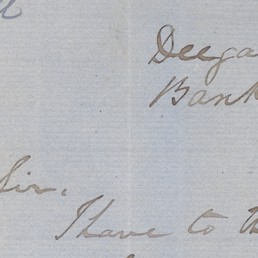 Deega
Bank
Sir,
I have to th